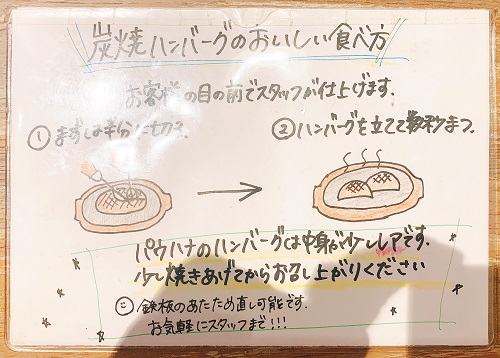 炭焼ハンバーグのおいしい食べ方
お客様の目の前でスタッフが仕上げます.
① まずは半分に切る.
② ハンバーグを立てて数秒まつ.
パウハナのハンバーグは中身が少しレアです.
少し焼きあげてからお召し上がりください
鉄板のあたため直し可能です.
お気軽にスタッフまで!!!